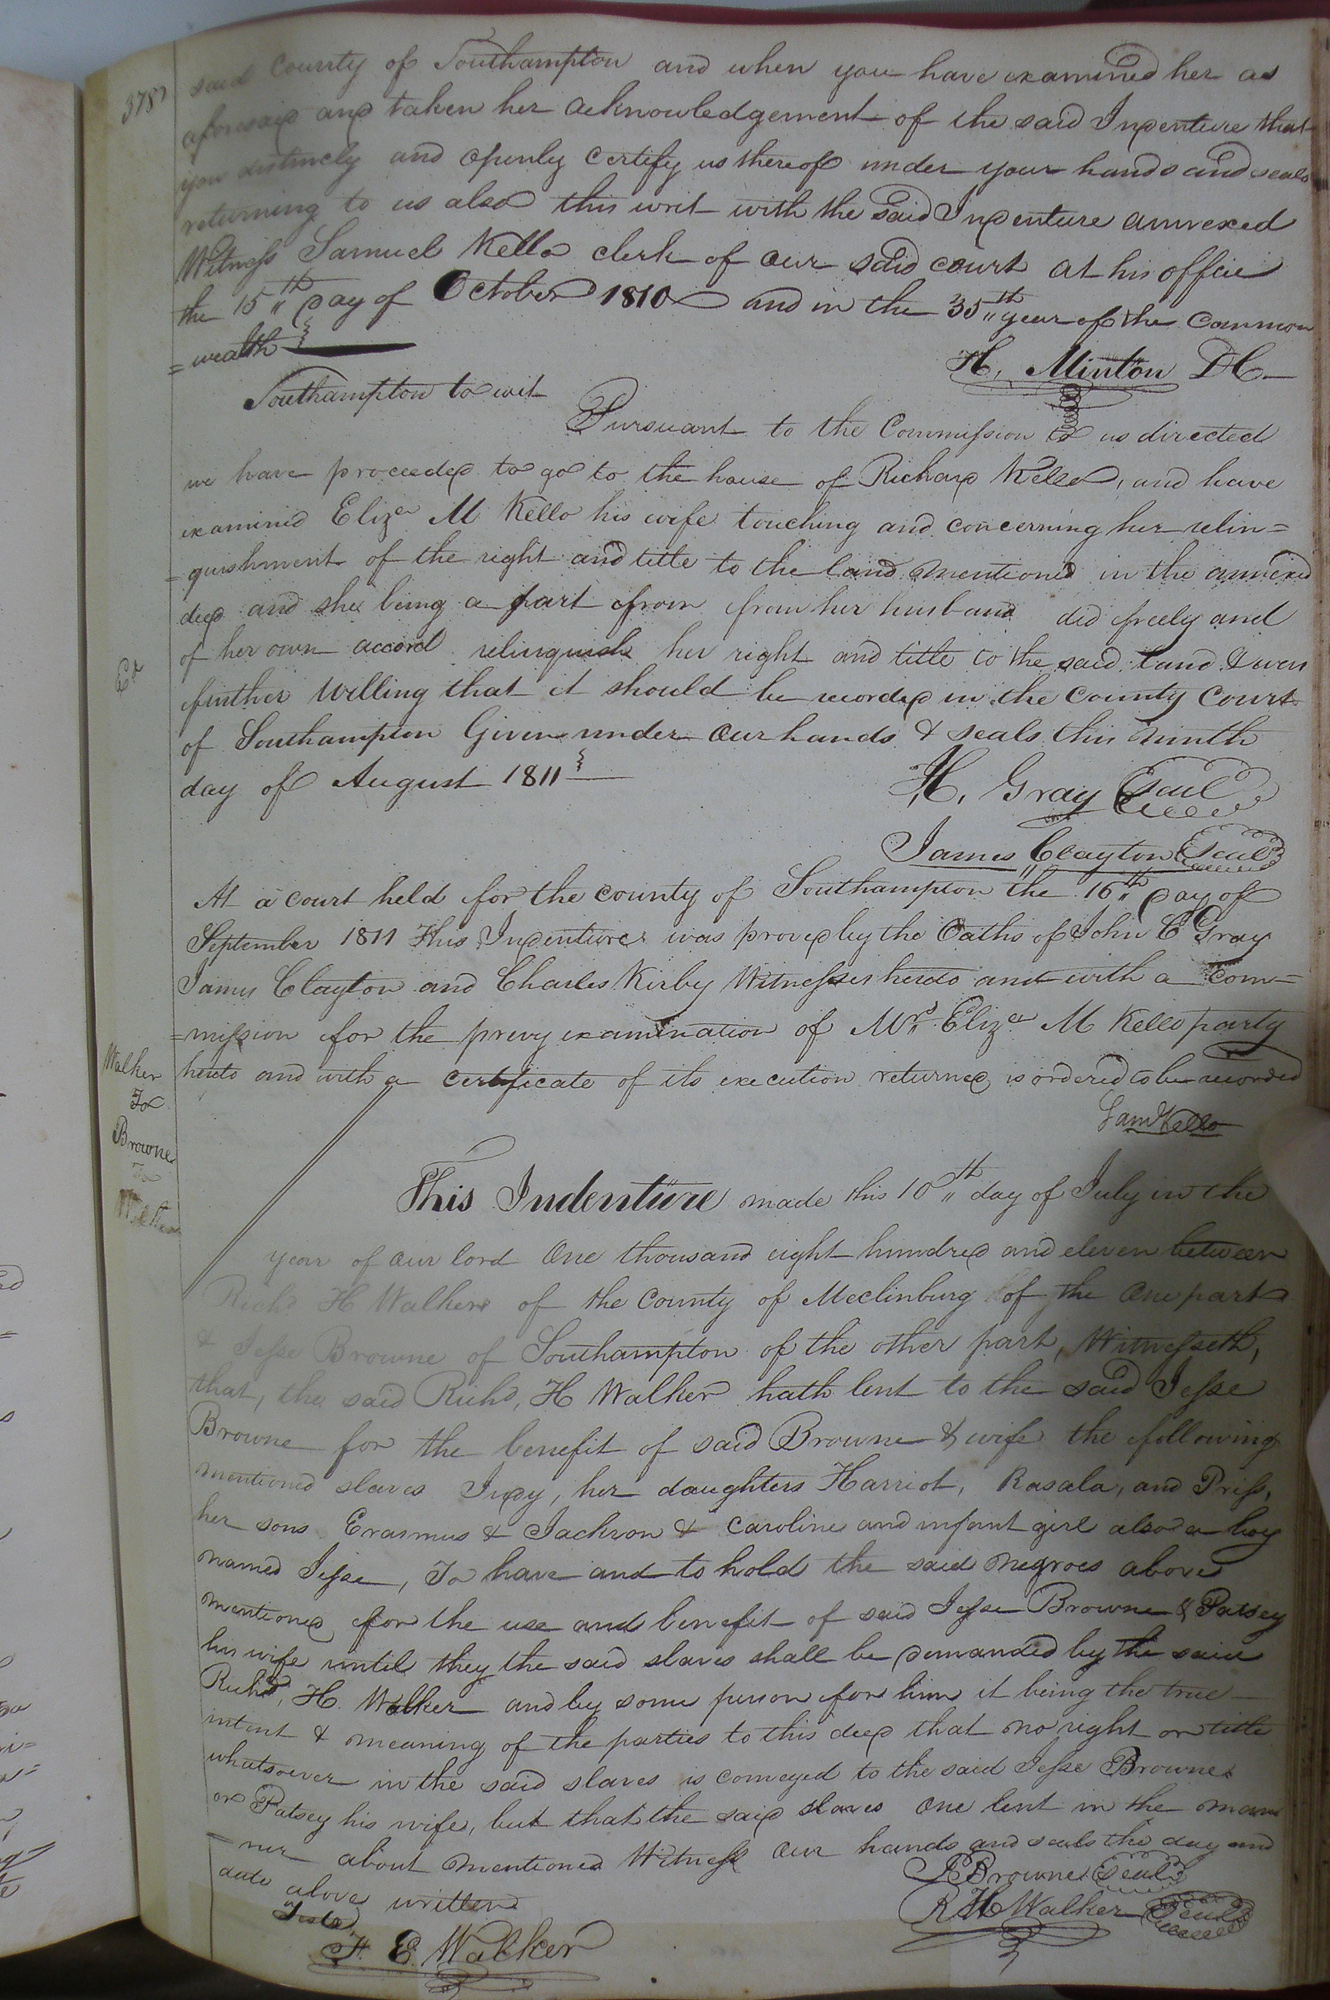 378
said County of Southampton and when you have examined her as
aforesaid and taken her acknowledgement of the said Indenture that
you distincly and openly certify us thereof under your hands and seals
returning to us also this writ with the said Indenture annexed
Witness Samuel Kello clerk of our said court at his office
the 15th day of October 1810 and in the 35th year of the Common
=wealth
H. Minton DC
Southampton to wit
Pursuant to the Commission to us directed
we have proceeded to go to the house of Richard Kello, and have
examined Eliza M Kello his wife touching and concerning her relin=
=quishment of the right and title to the land mentioned in the annexed
deed and she being a part from from her husband did freely and
of her own accord relinquish her right and title to the said land & was
further willing that it should be recorded in the County Court
of Southampton Given under our hands & seals this ninth
day of August 1811
Ex
H. Gray Seal
James Clayton Seal
At a court held for the county of Southampton the 16th day of
September 1811 This Indenture was proved by the Oaths of John C Gray
James Clayton and Charles Kirby Witnesses hereto and with a com=
=mission for the privy examination of Mrs Eliza M Kello party
hereto and with a certificate of its execution returned is ordered to be recorded
Saml Kello
Walker
To
Browne
To
This Indenture made this 10th day of July in the
year of our lord One thousand eight hundred and eleven between
Richd H Walker of the County of Meclinburg of the one part
& Jesse Browne of Southampton of the other part, Witnesseth,
that, the said Richd, H Walker hath lent to the said Jesse
Browne for the benefit of said Browne & wife the following
mentioned slaves Judy, her daughters Harriot, Rasala, and Priss,
her sons Erasmus & Jackson & Caroline and infant girl also a boy
named Jesse, To have and to hold the said negroes above
mentioned for the use and benefit of said Jesse Browne & Patsey
his wife until they the said slaves shall be demanded by the said
Richd, H. Walker and by some person for him it being the true
intent & meaning of the parties to this deed that no right or title
whatsoever in the said slaves is conveyed to the said Jesse Browne
or Patsey his wife, but that the said slaves one lent in the man
=ner about mentioned Witness our hands and seals the day and
date above written
J Browne Seal
R H Walker Seal
Teste
H. E. Walker